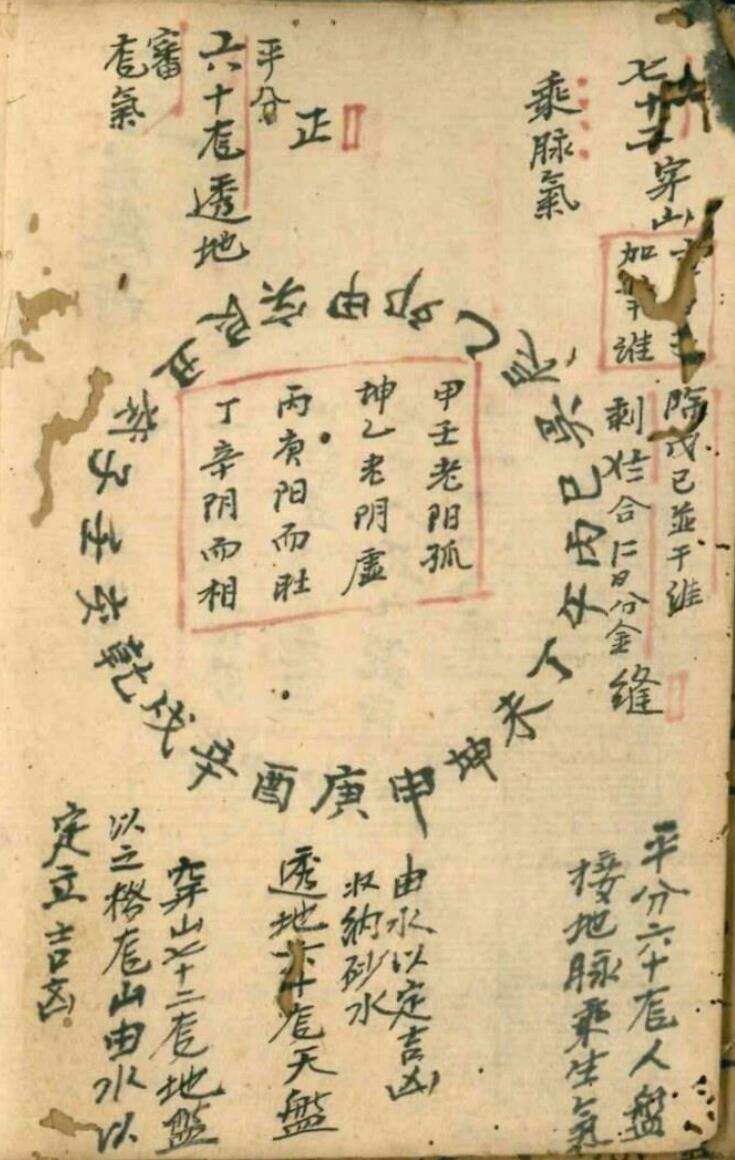 七十二穿山
加四維
乘脉氣
除戊己並干維
剩
合
分金縫
正
平分
六十龙透地
審
龙氣
壬子癸丑艮寅甲卯乙辰巽巳丙午丁未坤申庚酉辛戌乾亥
甲壬老阳孤
坤乙老阴虚
丙庚阳而旺
丁辛阴而相
平分六十龙人盤
接地脉乘生氣
由水以定吉凶
收納砂水
透地六十龙天盤
穿山七十二龙地盤
以之格龙山由水以
定立吉凶